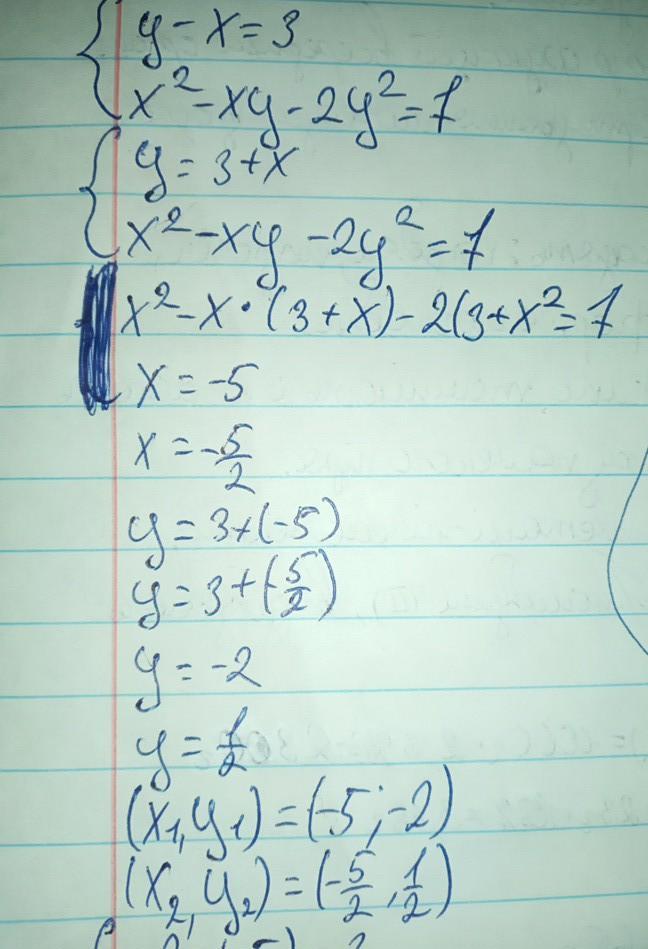 y - x = 3
x² - xy - 2y² = 7
y = 3 + x
x² - xy - 2y² = 7
x² - x · (3 + x) - 2(3 + x² = 7
x = -5
x = -5/2
y = 3 + (-5)
y = 3 + (-5/2)
y = -2
y = 1/2
(x₁, y₁) = (-5; -2)
(x₂, y₂) = (-5/2, 1/2)